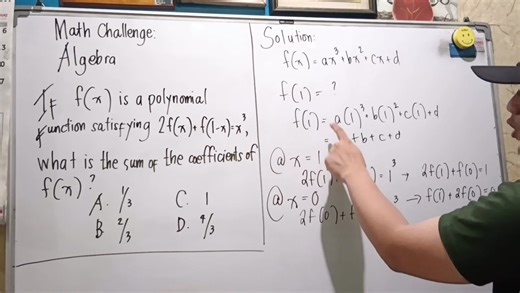 Math Challenge:
Algebra
If f(x) is a polynomial
function satisfying 2f(x)+f(1-x)=x³,
what is the sum of the coefficients of
f(x)?
A. 1/3
C. 1
B 2/3
D. 4/3
Solution:
f(x)=ax³+bx²+cx+d
f(1) = ?
f(1)= a(1)³+b(1)²+c(1)+d
= + b + c + d
@ x = 1
2f(1) = 1³ → 2f(1)+f(0)=1
@ x = 0
2f(0)+f ³ → f(1)+2f(0)=